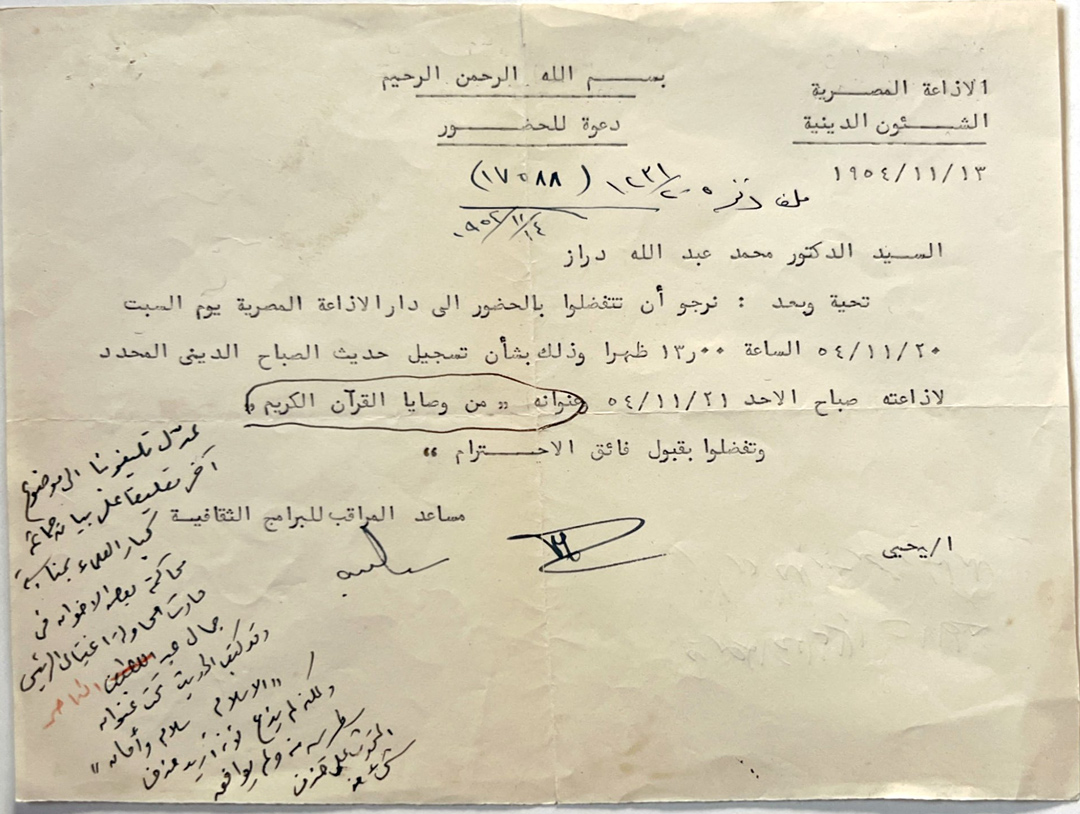 الاذاعة المصرية
الشئون الدينية
١٩٥٤/١١/١٣
بسم الله الرحمن الرحيم
دعوة للحضور
ملف (١٧٥٨٨)
السيد الدكتور محمد عبد الله دراز
تحية وبعد : نرجو أن تتفضلوا بالحضور الى دار الاذاعة المصرية يوم السبت
٥٤/١١/٢٠ الساعة ١٣ر٠٠ ظهرا وذلك بشأن تسجيل حديث الصباح الدينى المحدد
لاذاعته صباح الاحد ٥٤/١١/٢١ وعنوانه „ من وصايا القرآن الكريم „
وتفضلوا بقبول فائق الاحترام “
مساعد المراقب للبرامج الثقافية
ا/يحيى
عدل تليفونيا الى موضوع
آخر تعليقا على بيان جماعة
كبار العلماء بمناسبة
محاكمة بعض الاخوان فى
حادث محاولة اغتيال الرئيس
جمال عبد الناصر
وقد كتب الحديث تحت عنوان
"الاسلام سلام وأمان"
ولكنه لم يذع لأنه أريد حذف
سطر منه ولم يوافق
المتحدث على حذف
شئ منه